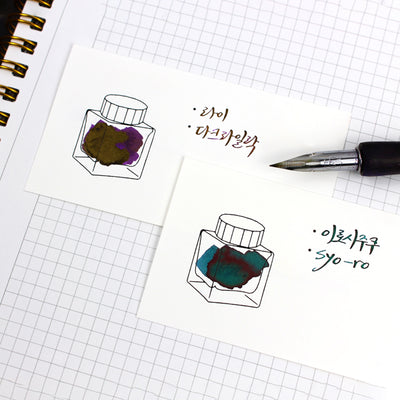 · 라이
· 다크라일락
· 이로시주쿠
· syo-ro